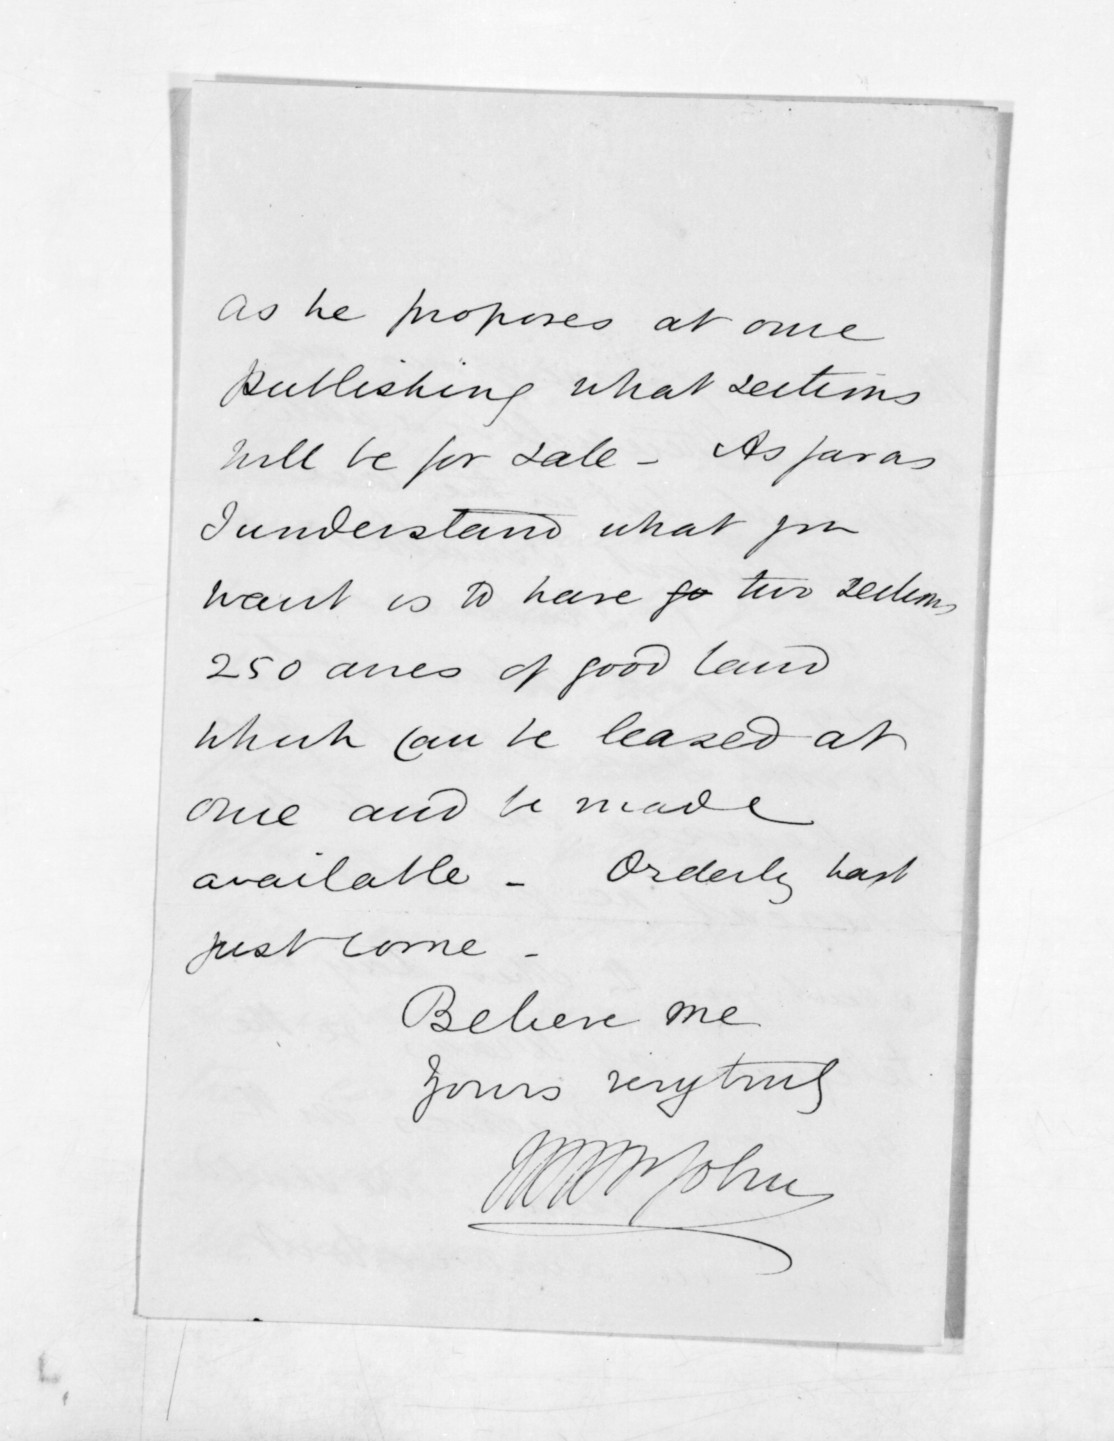 as he proposes at once
publishing what sections
will be for sale - As far as
I understand what you
want is to have go two sections
250 acres of good land
which can be leased at
once and be made
available - Orderly has
just come -
Believe me
Yours very truly
John